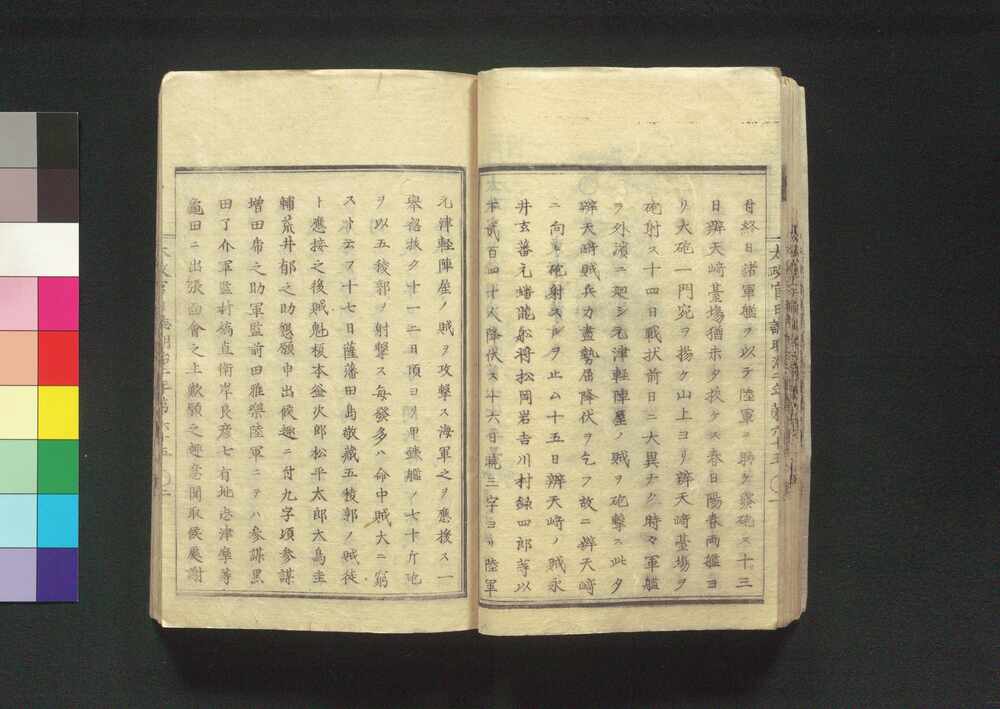 日終日諸軍艦ヲ以テ陸軍ヲ助ケ發砲ス十三
日辨天﨑臺場猶未タ拔ケス春日陽春兩艦ヨ
リ大砲一門宛ヲ揚ケ山上ヨリ辨天﨑臺場ヲ
砲射ス十四日戰狀前日ニ大異ナク時々軍艦
ヲ外濱ニ廻シ元津輕陣屋ノ賊ヲ砲擊ス此夕
辨天﨑賊兵力盡勢屈降伏ヲ乞フ故ニ辨天﨑
ニ向テ砲射スルヲ止ム十五日辨天﨑ノ賊永
井玄蕃元蟠龍船將松岡岩吉川村錄四郎等以
下貳百四十人降伏ス十六日曉三字ヨリ陸軍
元津輕陣屋ノ賊ヲ攻擊ス海軍之ヲ應援ス一
擧招拔ク十一二日頃ヨリ甲鐵艦ノ七十斤砲
ヲ以五稜郭ヲ射擊ス每發多ハ命中賊大ニ窮
スト云フ十七日薩藩田島敬藏五稜郭ノ賊徒
ト應接之後賊魁榎本釜次郎松平太郎大鳥圭
輔荒井郁之助懇願申出候趣ニ付九字頃參謀
增田虎之助軍監前田雅樂陸軍ニテハ參謀黑
田了介軍監村橋直衛岸良彥七有地志津摩等
龜田ニ出張面會之上歎願之趣意聞取候處謝